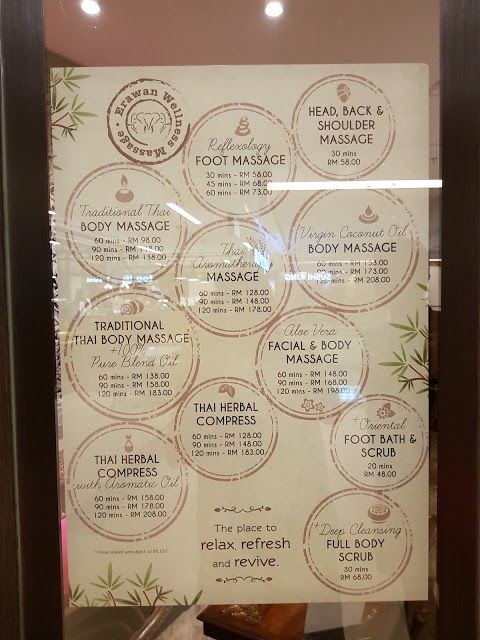 Erawan Wellness Massage
Reflexology
FOOT MASSAGE
30 mins - RM 58.00
45 mins - RM 68.00
60 mins - RM 73.00
HEAD, BACK &
SHOULDER
MASSAGE
30 mins
RM 58.00
Traditional Thai
BODY MASSAGE
60 mins - RM 98.00
90 mins - RM
120 mins - RM 138.00
Thai
Aromatherapy
MASSAGE
60 mins - RM 128.00
90 mins - RM 148.00
120 mins - RM 178.00
Virgin Coconut Oil
BODY MASSAGE
60 mins - RM 153.00
90 mins - RM 173.00
120 mins - RM 208.00
TRADITIONAL
THAI BODY MASSAGE
+100%
Pure Blend Oil
60 mins - RM 138.00
90 mins - RM 158.00
120 mins - RM 183.00
Aloe Vera
FACIAL & BODY
MASSAGE
60 mins - RM 148.00
90 mins - RM 168.00
120 mins - RM 198.00
THAI HERBAL
COMPRESS
60 mins - RM 128.00
90 mins - RM 148.00
120 mins - RM 183.00
+Oriental
FOOT BATH &
SCRUB
20 mins
RM 48.00
THAI HERBAL
COMPRESS
with Aromatic Oil
60 mins - RM 158.00
90 mins - RM 178.00
120 mins - RM 208.00
+Deep Cleansing
FULL BODY
SCRUB
30 mins
RM 68.00
The place to
relax, refresh
and revive.
* Prices stated 6% GST